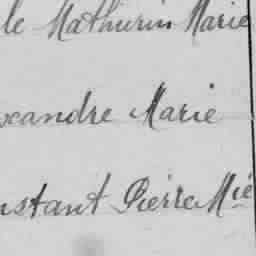 le Mathurin Marie
xandre Marie
nstant Pierre Mie